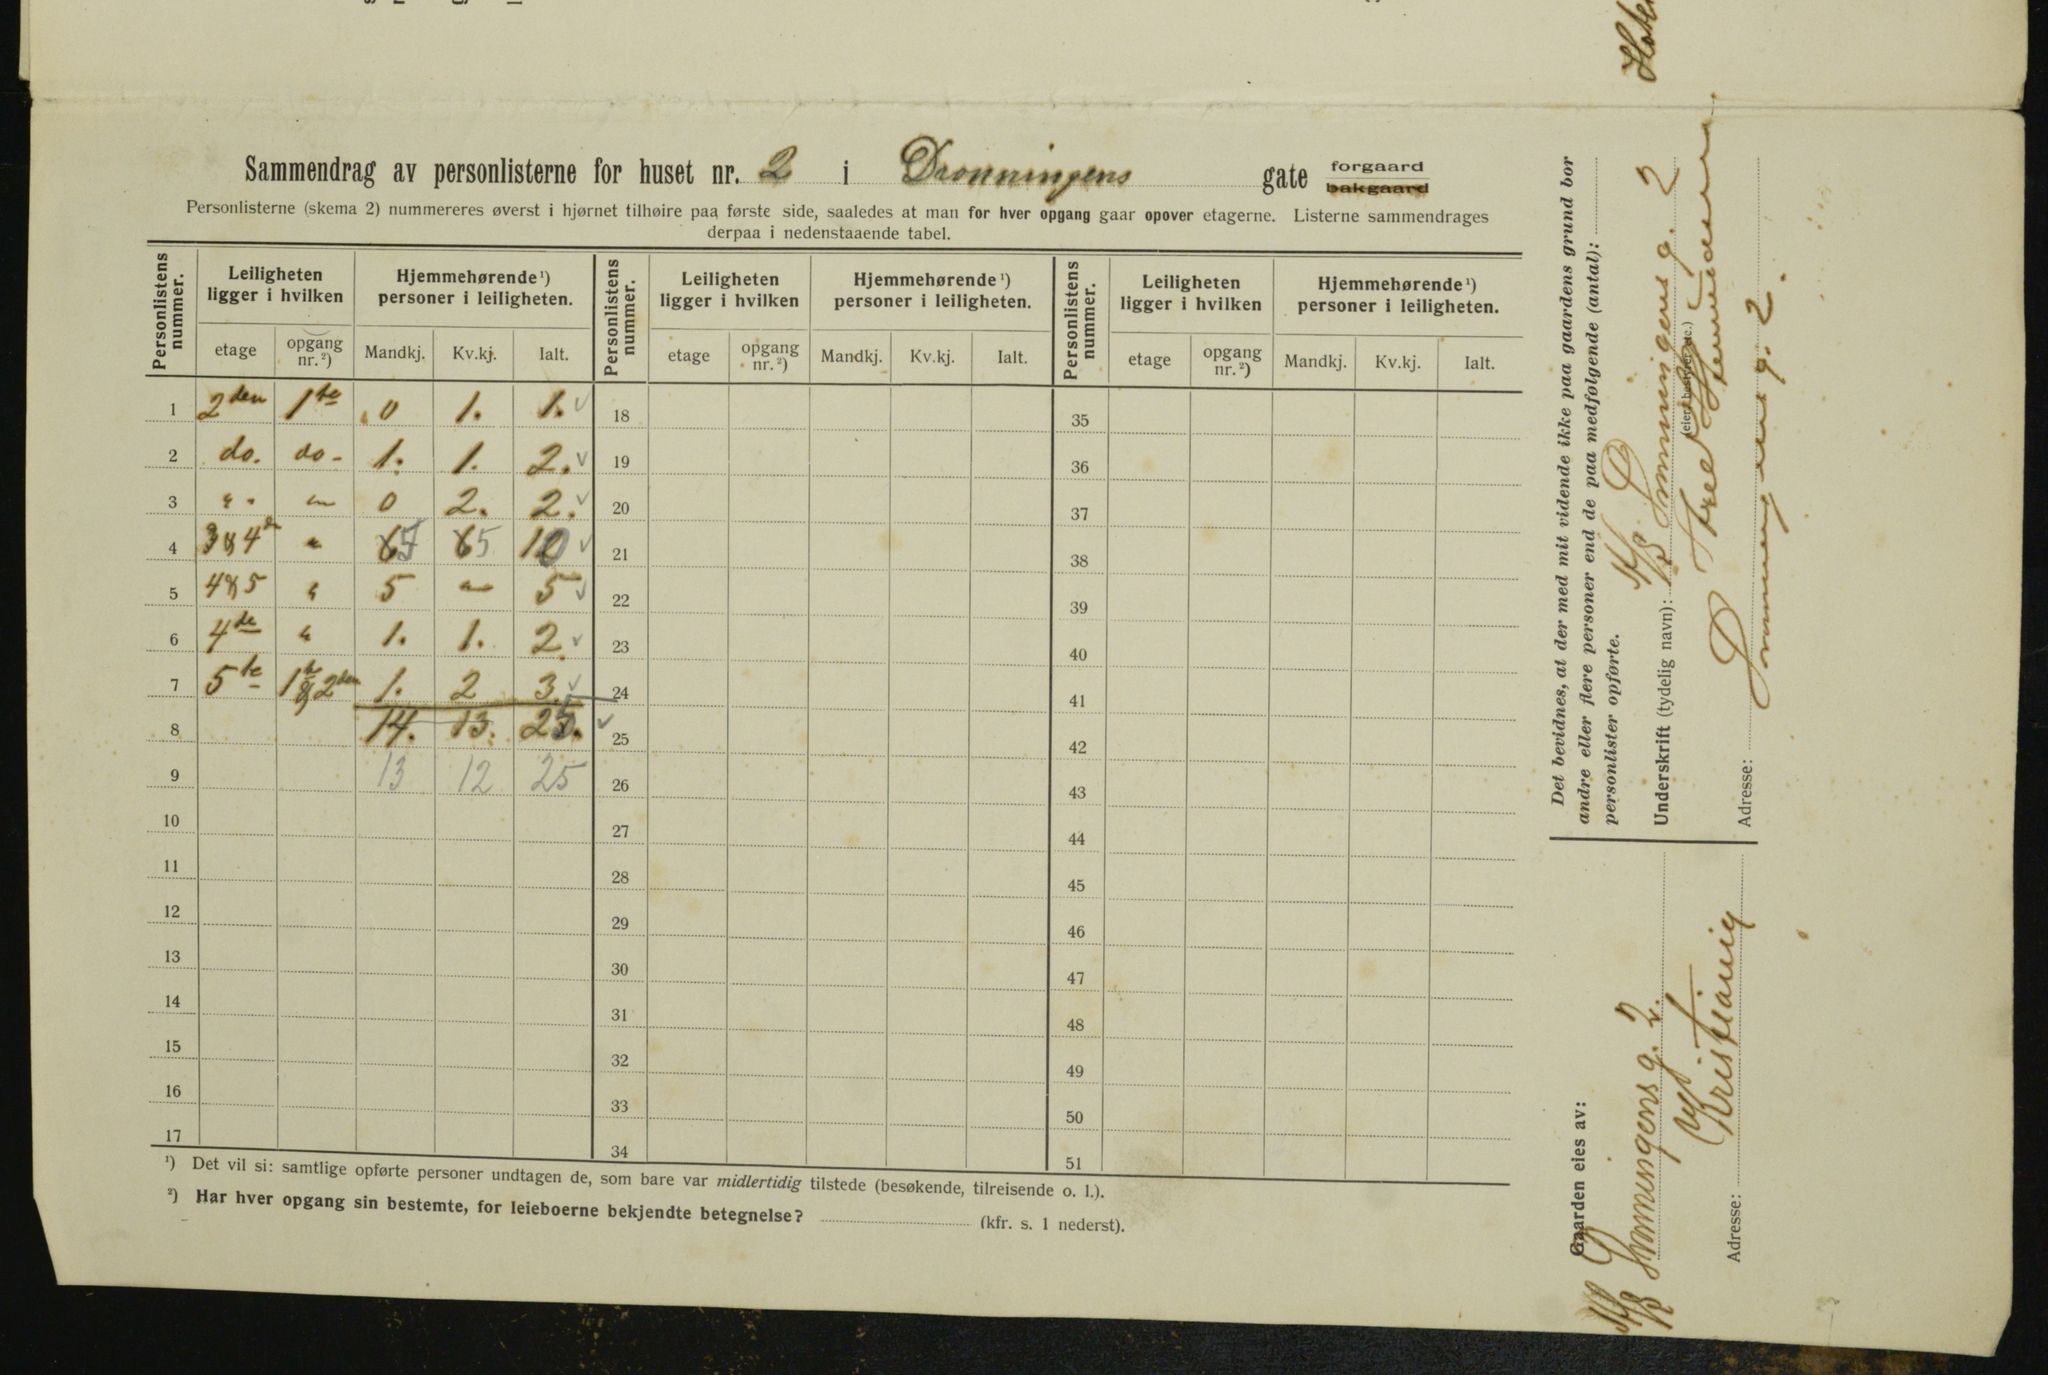 Sammendrag av personlisterne for huset nr. 2 i Dronningens gate forgaard bakgaard
Personlisterne (skema 2) nummereres øverst i hjørnet tilhøire paa første side, saaledes at man for hver opgang gaar opover etagerne. Listerne sammendrages
derpaa i nedenstaaende tabel.
Personlistens nummer. Leiligheten ligger i hvilken Hjemmehørende ¹) personer i leiligheten. Personlistens nummer. Leiligheten ligger i hvilken Hjemmehørende ¹) personer i leiligheten. Personlistens nummer. Leiligheten ligger i hvilken Hjemmehørende ¹) personer i leiligheten.
etage opgang nr. ²) Mandkj. Kv.kj. Ialt. etage opgang nr. ²) Mandkj. Kv.kj. Ialt. etage opgang nr. ²) Mandkj. Kv.kj. Ialt.
1 2den 1ste 0 1. 1. 18 35
2 do. do- 1. 1. 2. 19 36
3 " " 0 2. 2. 20 37
4 3&4 " 5 5 10 21 38
5 4&5 " 5 — 5 22 39
6 4de " 1. 1. 2. 23 40
7 5te 1&2den 1. 2 3. 24 41
8 14. 13. 25. 25 42
9 13 12 25 26 43
10 27 44
11 28 45
12 29 46
13 30 47
14 31 48
15 32 49
16 33 50
17 34 51
¹) Det vil si: samtlige opførte personer undtagen de, som bare var midlertidig tilstede (besøkende, tilreisende o. l.).
²) Har hver opgang sin bestemte, for leieboerne bekjendte betegnelse? (kfr. s. 1 nederst).
Det bevidnes, at der med mit vidende ikke paa gaardens grund bor
andre eller flere personer end de paa medfølgende (antal):
personlister opførte.
A/S Dronningens g. 2
Underskrift (tydelig navn):
(eier, bestyrer etc.)
Dronningens g. 2.
Adresse:
Gaarden eies av:
A/S Dronningens g. 2.
Kristiania
Adresse: